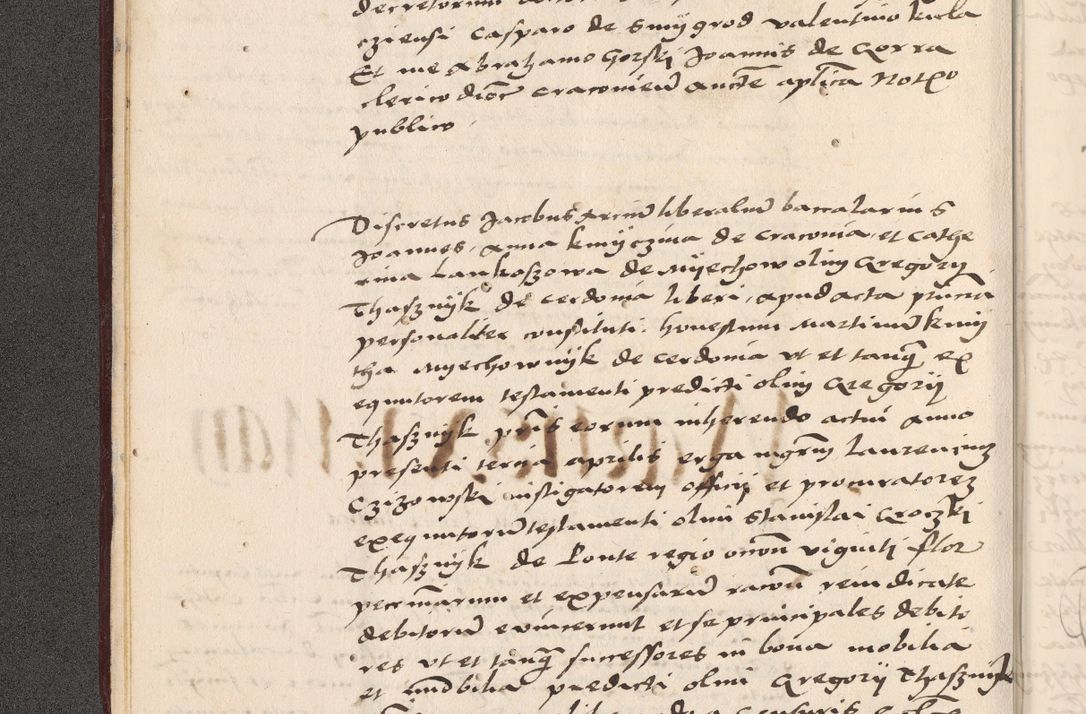 decretorum
cziensi Casparo de Smygrod Valentino
Et me Abrahamo Gorski Joannis de Gorra
clerico dioc̄ Cracovien̄ aucte aplica Notro
publico
Discretus Jacobus Arciū liberaliū baccalarius
Joannes, Anna kmyczina de Cracovia, et Cathe
rina Lankoszowa de Myechow olim Gregorii
Thasznyk de Cerdonia liberi, apud acta
personaliter constituti, honestum Martinū kmy
tha Myechownyk de Cerdonia ut et tanq̃ ex
equutorem testamenti predicti olim Gregorii
Thasznyk pñs eorum inherendo actui anno
presenti tercia aprilis erga mgrm Laurencium
Czizowski instigatorem officij et procuratorem
exequutorū testamenti olim Stanislai Groczki
Thasznyk de Ponte regio viginti flor
pecuniarum et expensarū racoñ reiudicate
debitorū evincerunt et se principales debito
res ut et tanq̃ successores in bona mobilia
et immobilia predicti olim Gregorii Thasznyk